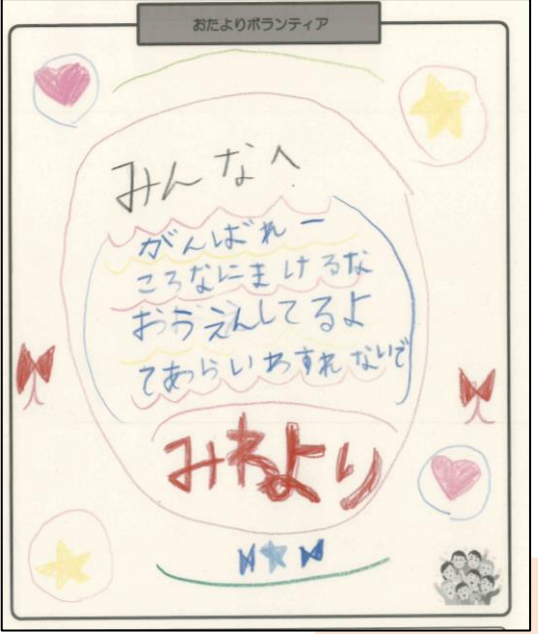 おたよりボランティア
みんなへ
がんばれー
ころなにまけるな
おうえんしてるよ
てあらいわすれないで
みねより